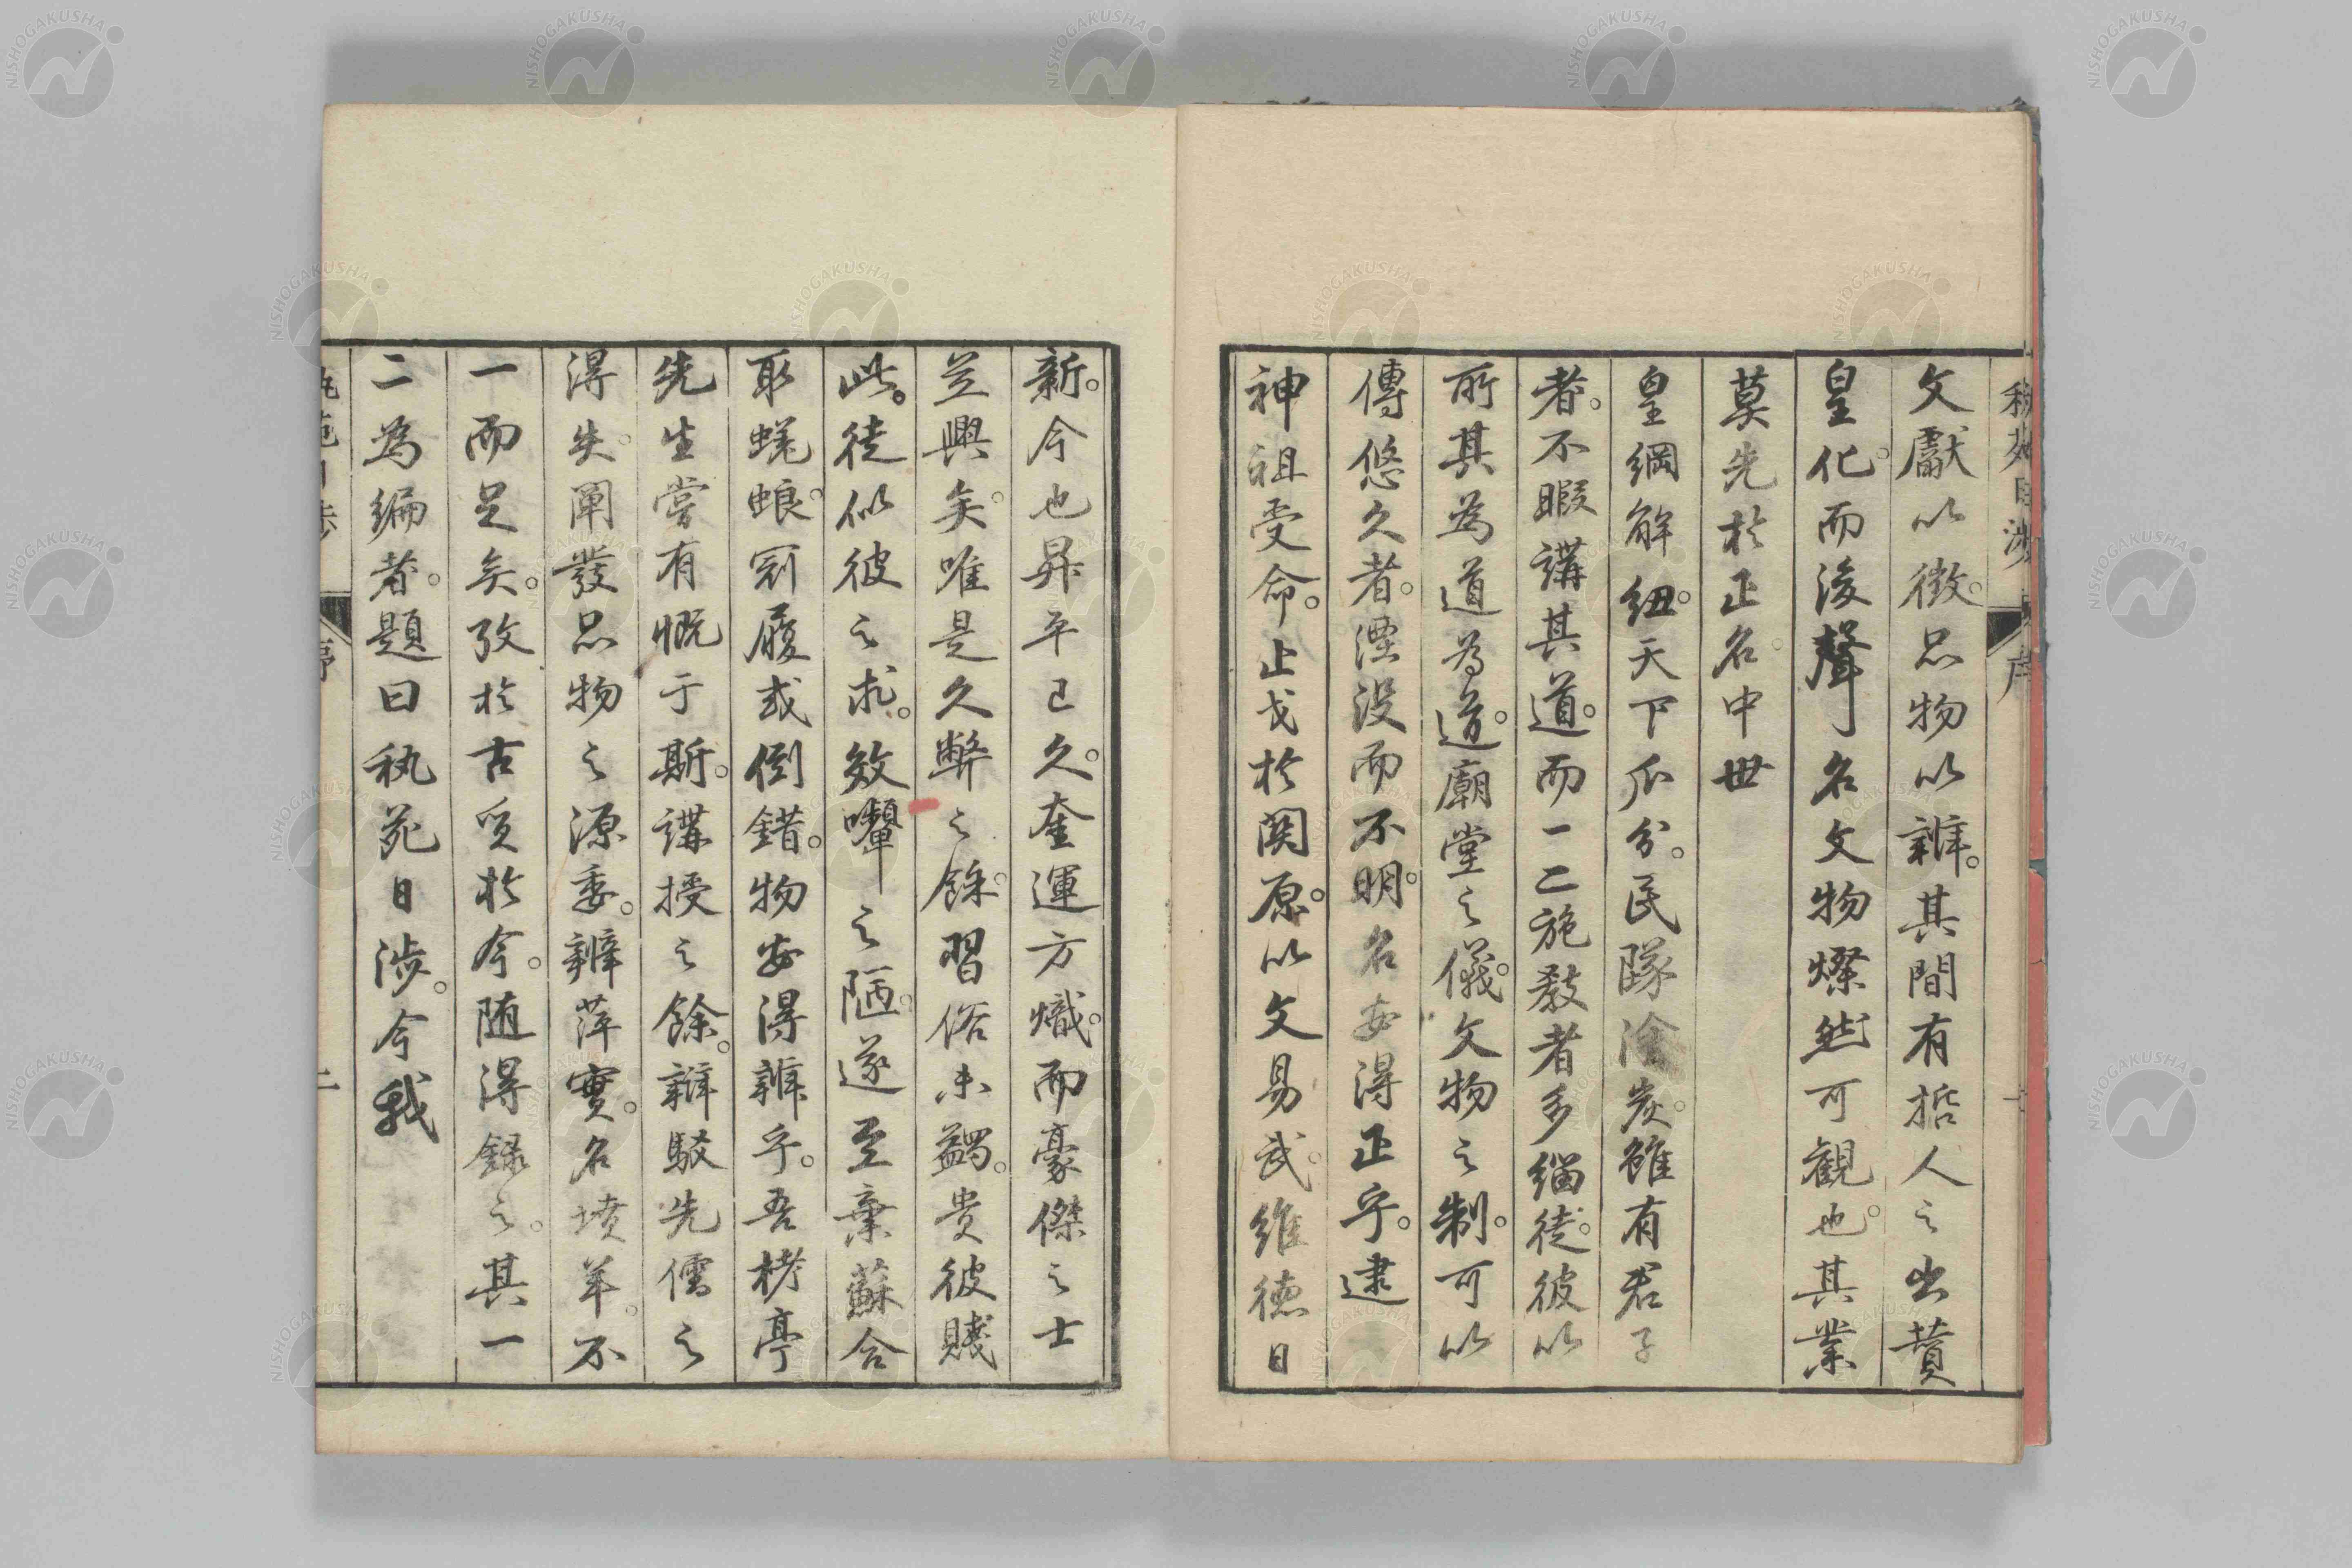 文獻以徵。品物以辨。其間有哲人之出賁
皇化。而後聲名文物燦然可觀也。其業
莫先於正名。中世
皇綱解紐。天下瓜分。民隊塗炭。雖有君子
者。不暇講其道。而一二施教者多緇徒。彼以
所其為道為道。廟堂之儀。文物之制。可以
傳悠久者。湮没而不明。名安得正乎。逮
神祖受命。止戈於関原。以文易武。維德日
新。今也昇平已久。奎運方熾。而豪傑之士
並興矣。唯是久弊之餘。習俗未蠲。貴彼賤
此。徒似彼之求。效嚬之陋。遂至棄蘇合
取蜣蜋。冠履或倒錯。物安得辨乎。吾栲亭
先生嘗有慨于斯。講授之餘。辨駁先儒之
得失。闡發品物之源委。辨萍實。名墳羊。不
一而足矣。攷於古質於今。随得録之。其一
二為編者。題曰秇苑日渉。今我
秇苑日渉
序
二
NISHOGAKUSHA